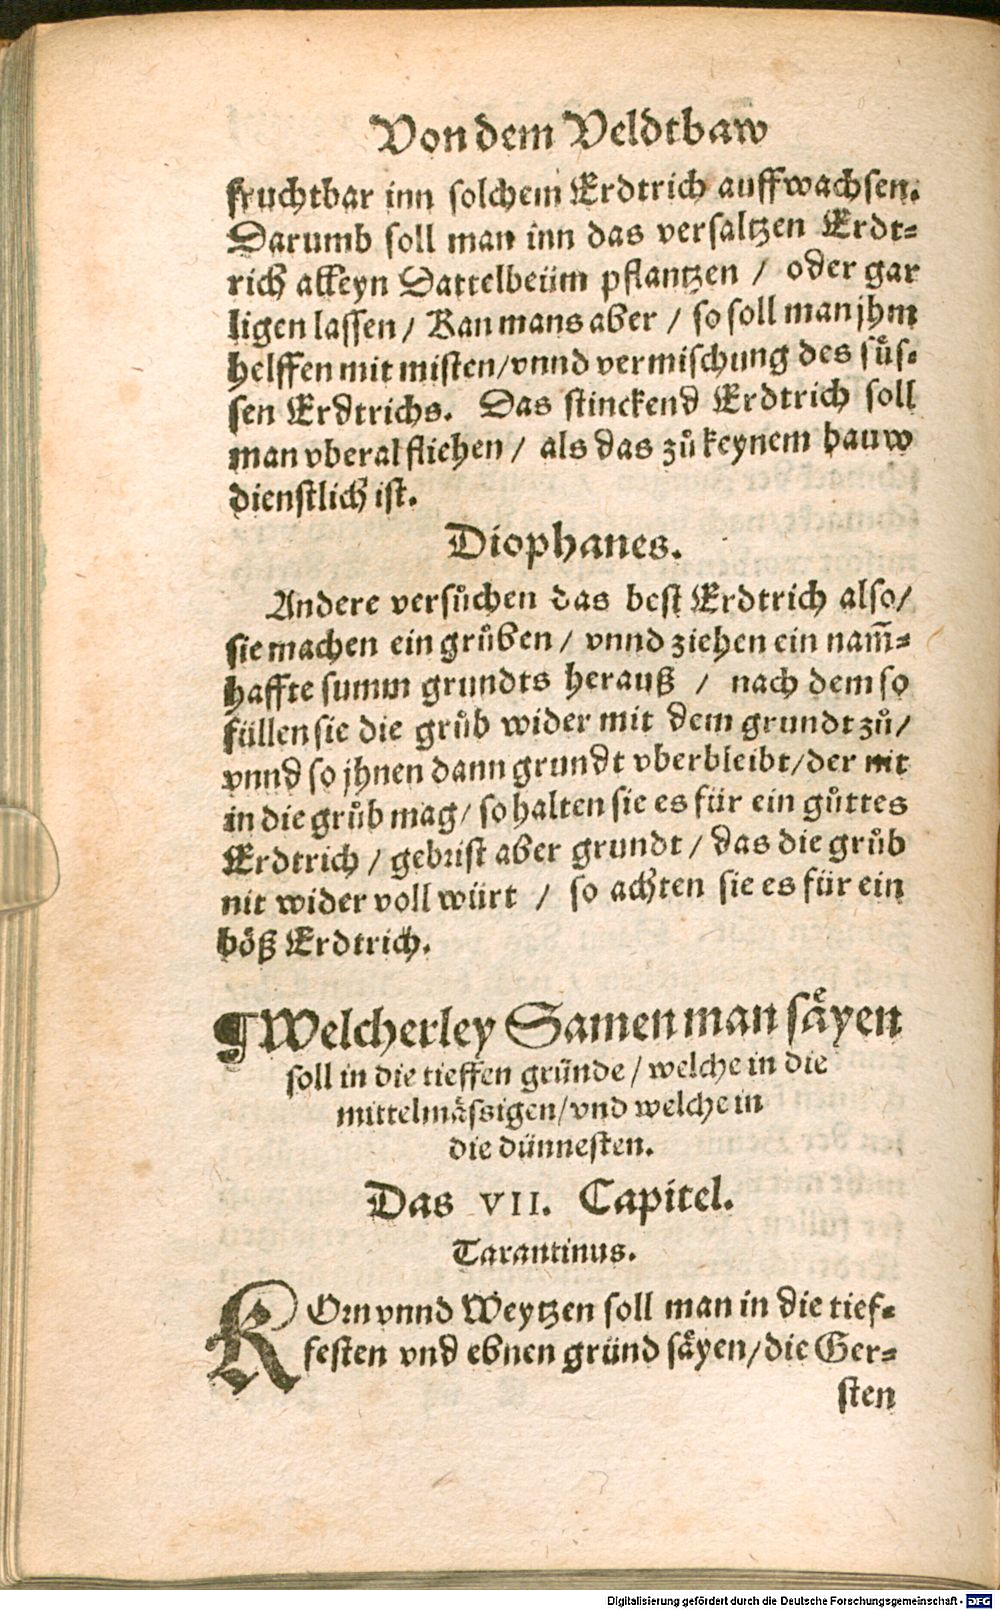 Von dem Veldtbaw
fruchtbar inn solchem Erdtrich auffwachsen.
Darumb soll man inn das versaltzen Erdt⸗
rich alleyn Dattelbeüm pflantzen / oder gar
ligen lassen / Kan mans aber / so soll man jhm
helffen mit misten / vnnd vermischung des süs⸗
sen Erdtrichs. Das stinckend Erdtrich soll
man vberal fliehen / als das zů keynem bauw
dienstlich ist.
Diophanes.
Andere versůchen das best Erdtrich also /
sie machen ein grůben / vnnd ziehen ein nam̃⸗
haffte summ grundts herauß / nach dem so
füllen sie die grůb wider mit dem grundt zů /
vnnd so jhnen dann grundt vberbleibt / der nit
in die grůb mag / so halten sie es für ein gůttes
Erdtrich / gebrist aber grundt / das die grůb
nit wider voll würt / so achten sie es für ein
böß Erdtrich.
¶ Welcherley Samen man säyen
soll in die tieffen gründe / welche in die
mittelmässigen / vnd welche in
die dünnesten.
Das VII. Capitel.
Tarantinus.
KOrn vnnd Weytzen soll man in die tief⸗
festen vnd ebnen gründ säyen / die Ger⸗
sten
Digitalisierung gefördert durch die Deutsche Forschungsgemeinschaft - DFG